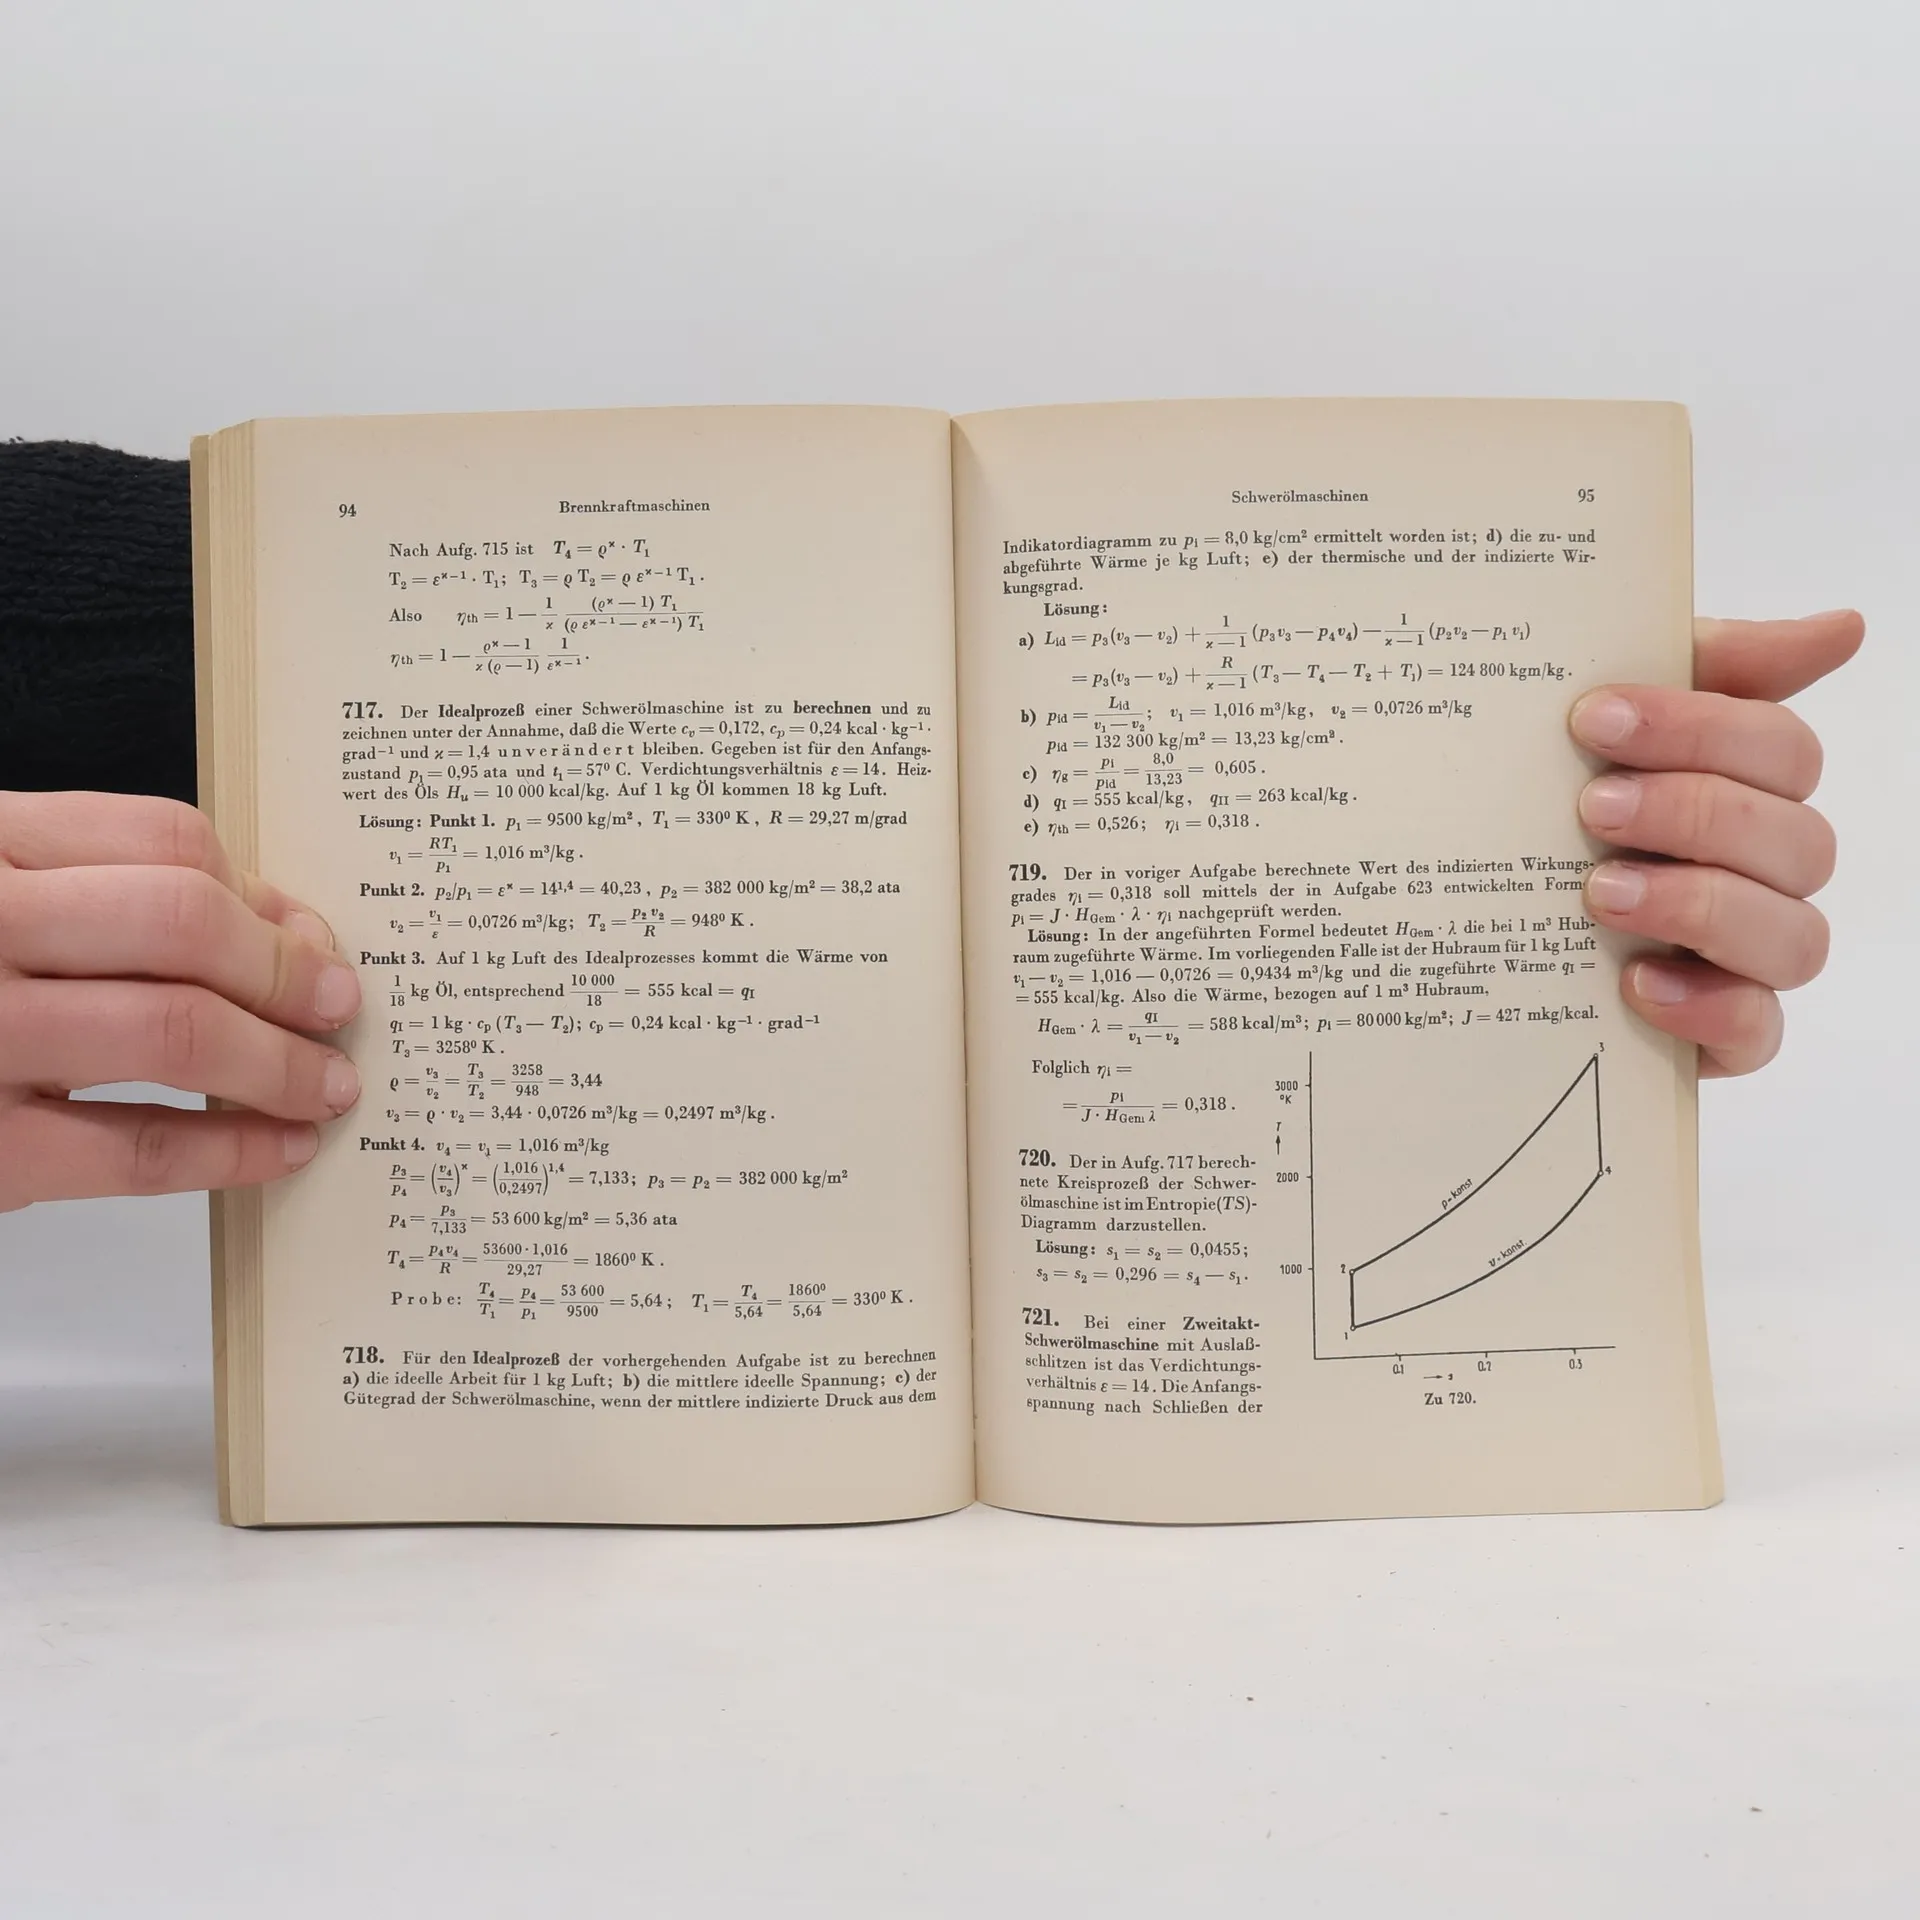 94 Brennkraftmaschinen
Nach Aufg. 715 ist T₄ = ϱ^ϰ · T₁
T₂ = ε^ϰ⁻¹ · T₁; T₃ = ϱ T₂ = ϱ ε^ϰ⁻¹ T₁.
Also η_th = 1 − 1/ϰ (ϱ^ϰ − 1) T₁ / (ϱ ε^ϰ⁻¹ − ε^ϰ⁻¹) T₁
η_th = 1 − (ϱ^ϰ − 1) / ϰ (ϱ − 1) 1/ε^ϰ⁻¹.
717. Der Idealprozeß einer Schwerölmaschine ist zu berechnen und zu
zeichnen unter der Annahme, daß die Werte c_v = 0,172, c_p = 0,24 kcal · kg⁻¹ ·
grad⁻¹ und ϰ = 1,4 unverändert bleiben. Gegeben ist für den Anfangs-
zustand p₁ = 0,95 ata und t₁ = 57⁰ C. Verdichtungsverhältnis ε = 14. Heiz-
wert des Öls H_u = 10 000 kcal/kg. Auf 1 kg Öl kommen 18 kg Luft.
Lösung: Punkt 1. p₁ = 9500 kg/m², T₁ = 330⁰ K, R = 29,27 m/grad
v₁ = RT₁/p₁ = 1,016 m³/kg.
Punkt 2. p₂/p₁ = ε^ϰ = 14^1,4 = 40,23, p₂ = 382 000 kg/m² = 38,2 ata
v₂ = v₁/ε = 0,0726 m³/kg; T₂ = p₂ v₂/R = 948⁰ K.
Punkt 3. Auf 1 kg Luft des Idealprozesses kommt die Wärme von
1/18 kg Öl, entsprechend 10 000/18 = 555 kcal = q_I
q_I = 1 kg · c_p (T₃ − T₂); c_p = 0,24 kcal · kg⁻¹ · grad⁻¹
T₃ = 3258⁰ K.
ϱ = v₃/v₂ = T₃/T₂ = 3258/948 = 3,44
v₃ = ϱ · v₂ = 3,44 · 0,0726 m³/kg = 0,2497 m³/kg.
Punkt 4. v₄ = v₁ = 1,016 m³/kg
p₃/p₄ = (v₄/v₃)^ϰ = (1,016/0,2497)^1,4 = 7,133; p₃ = p₂ = 382 000 kg/m²
p₄ = p₃/7,133 = 53 600 kg/m² = 5,36 ata
T₄ = p₄v₄/R = 53600·1,016/29,27 = 1860⁰ K.
Probe: T₄/T₁ = p₄/p₁ = 53 600/9500 = 5,64; T₁ = T₄/5,64 = 1860⁰/5,64 = 330⁰ K.
718. Für den Idealprozeß der vorhergehenden Aufgabe ist zu berechnen
a) die ideelle Arbeit für 1 kg Luft; b) die mittlere ideelle Spannung; c) der
Gütegrad der Schwerölmaschine, wenn der mittlere indizierte Druck aus dem
Schwerölmaschinen 95
Indikatordiagramm zu p_i = 8,0 kg/cm² ermittelt worden ist; d) die zu- und
abgeführte Wärme je kg Luft; e) der thermische und der indizierte Wir-
kungsgrad.
Lösung:
a) L_id = p₃(v₃ − v₂) + 1/(ϰ − 1) (p₃v₃ − p₄v₄) − 1/(ϰ − 1) (p₂v₂ − p₁ v₁)
= p₃(v₃ − v₂) + R/(ϰ − 1) (T₃ − T₄ − T₂ + T₁) = 124 800 kgm/kg.
b) p_id = L_id/(v₁ − v₂); v₁ = 1,016 m³/kg, v₂ = 0,0726 m³/kg
p_id = 132 300 kg/m² = 13,23 kg/cm².
c) η_g = p_i/p_id = 8,0/13,23 = 0,605.
d) q_I = 555 kcal/kg, q_II = 263 kcal/kg.
e) η_th = 0,526; η_i = 0,318.
719. Der in voriger Aufgabe berechnete Wert des indizierten Wirkungs-
grades η_i = 0,318 soll mittels der in Aufgabe 623 entwickelten Form
p_i = J · H_Gem · λ · η_i nachgeprüft werden.
Lösung: In der angeführten Formel bedeutet H_Gem · λ die bei 1 m³ Hub-
raum zugeführte Wärme. Im vorliegenden Falle ist der Hubraum für 1 kg Luft
v₁ − v₂ = 1,016 − 0,0726 = 0,9434 m³/kg und die zugeführte Wärme q_I =
= 555 kcal/kg. Also die Wärme, bezogen auf 1 m³ Hubraum,
H_Gem · λ = q_I/(v₁ − v₂) = 588 kcal/m³; p_i = 80000 kg/m²; J = 427 mkg/kcal.
Folglich η_i =
= p_i/(J · H_Gem λ) = 0,318.
720. Der in Aufg. 717 berech-
nete Kreisprozeß der Schwer-
ölmaschine ist im Entropie(TS)-
Diagramm darzustellen.
Lösung: s₁ = s₂ = 0,0455;
s₃ = s₂ = 0,296 = s₄ − s₁.
721. Bei einer Zweitakt-
Schwerölmaschine mit Auslaß-
schlitzen ist das Verdichtungs-
verhältnis ε = 14. Die Anfangs-
spannung nach Schließen der
3000
°K
T
2000
1000
3
4
2
1
p-konst
v-konst.
0.1 0.2 0.3
s
Zu 720.